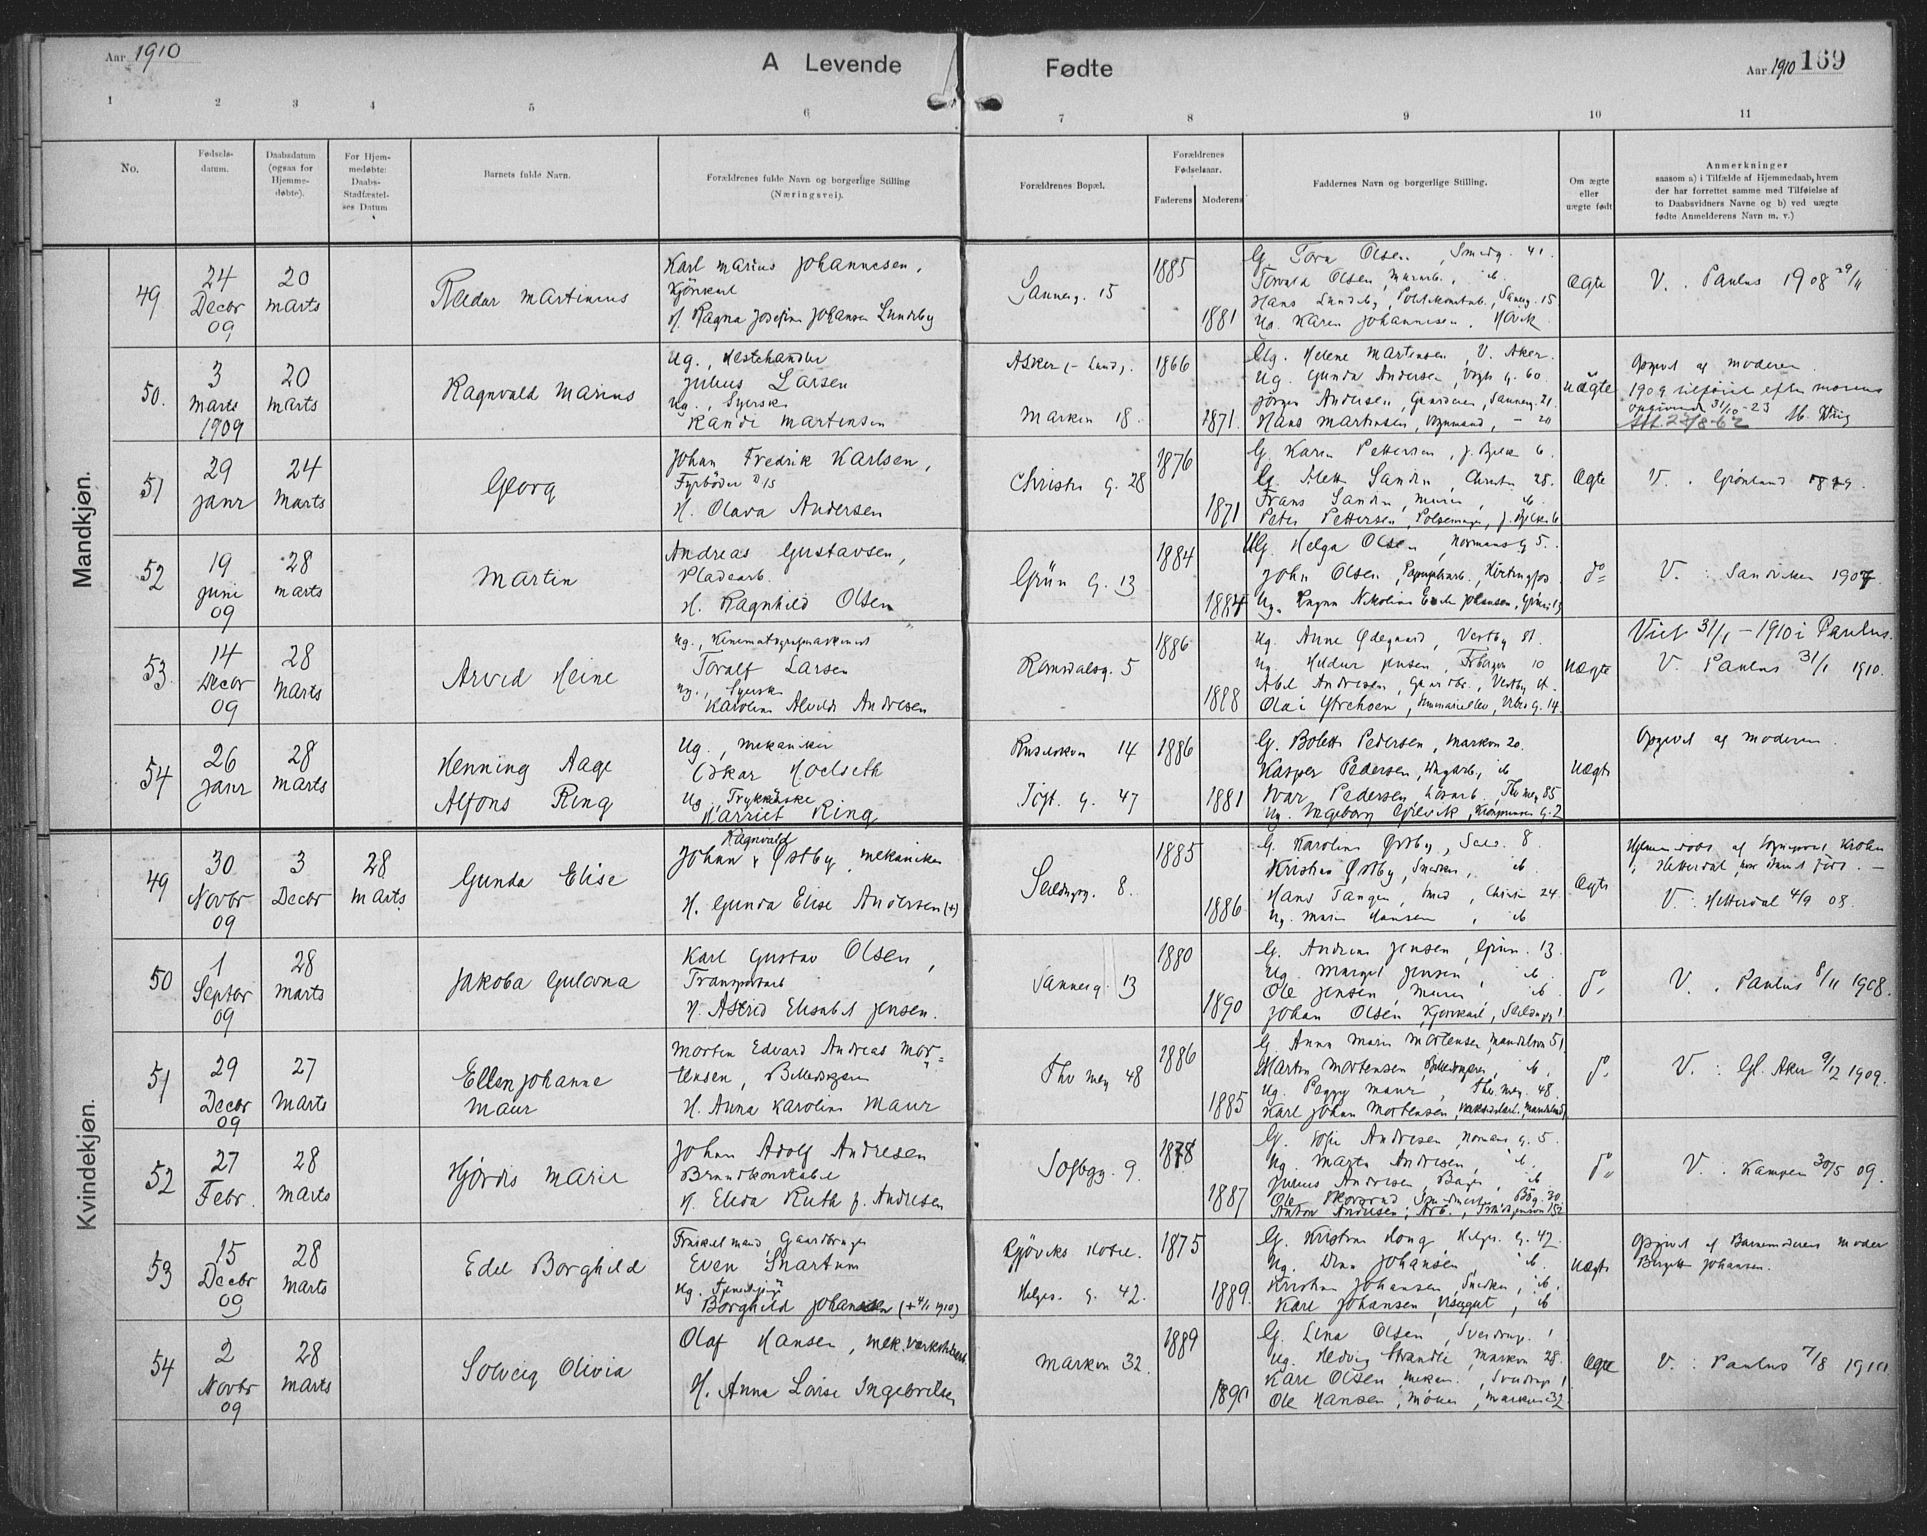 Aar 1910
A Levende Fødte
Aar 1910 169
1 2 3 4 5 6 7 8 9 10 11
No.
Fødsels-
datum.
Daabsdatum
(ogsaa for
Hjemme-
døbte).
For Hjem-
medøbte:
Daabs-
Stadfæstel-
ses Datum
Barnets fulde Navn.
Forældrenes fulde Navn og borgerlige Stilling
(Næringsvei).
Forældrenes Bopæl.
Forældrenes
Fødselsaar.
Faderens Moderens
Faddernes Navn og borgerlige Stilling.
Om ægte
eller
uægte født
Anmerkninger
saasom a) i Tilfælde af Hjemmedaab, hvem
der har forrettet samme med Tilføielse af
to Daabsvidners Navne og b) ved uægte
fødte Anmelderens Navn m. v.)
Mandkjøn.
49
24
Decbr
09
20
Marts
Reidar Martinius
Karl Marius Johannesen,
Kjørekarl
H. Ragna Josefine Johansen Lundeby
Sannerg. 15
1885
1881
G. Tora Olsen, Smedg. 41.
Torvald Olsen, Murarb., ib.
Hans Lundeby, Politikonstab., Sannerg. 15
Ug. Karen Johannesen, Høvik
Ægte
V. . Paulus 1908 29/11
50.
3
Marts
1909
20
Marts
Ragnvald Marius
Ug., Hestehandler
Julius Larsen
Ug., Syerske
Randi Martensen
Asker
Markvn 18.
1866
1871.
Ug. Helene Martensen, V. Aker.
Ug. Gunda Andersen, Vogts g. 60.
Jørgen Andersen, Sannerg. 21.
Hans Martinsen, Vognmand, – 20
uægte
Opgivet af moderen.
1909 tilføiet efter morens
opgivende 31/10-23
51
29
Janr
24
Marts
Georg
Johan Fredrik Karlsen,
Fyrbøder
H. Olava Andersen
Christies g. 28
1876
1871
G. Karen Pettersen, J. Bjelkes 6.
G. Alette Sandin, Christies 28.
Frans Sandin, Murer, ib
Peter Pettersen, Pølsemager, J. Bjelkes 6
Ægte
V. . Grønland
52
19
Juni
09
28
Marts
Martin
Andreas Gustavsen,
Pladearb.
H. Ragnhild Olsen
Grün. G. 13
1884
1884
Ug. Helga Olsen, Normans g 5.
John Olsen, Papegøiarb.
Ug.
do
V. : Sandviken 1907
53.
14
Decbr
09
28
Marts
Arvid Heine
Ug., Kinematografmaskinist
Toralf Larsen
Ug., Syerske
Karoline Alvilde Andresen
Romsdalsg. 5
1886
1888
Ug. Anne Ødegaard, Vestby st.
Ug. Hildur Jensen, 10
Abel Andresen, Gaardbr., Vestby st.
Ola i Ytrehoen, g. 14.
Uægte
Viet 31/1 – 1910 i Paulus.
V. Paulus 31/1 1910.
54
26
Janr
28
Marts
Henning Aage
Alfons Ring
Ug., Mekaniker
Oskar Hoelseth
Ug., Trykkerske
Harriet Ring
14
Toft. G. 47
1886
1881
G. Bolette Pedersen, Markvn 20.
Kasper Pedersen, ib
Ivar Pedersen, Th. mey 85
Ug. Ingeborg
Uægte
Opgivet af moderen.
Kvindekjøn.
49
30
Novbr
09
3
Decbr
28
Marts
Gunda Elise
Ragnvald
Johan Østby, Mekaniker
H. Gunda Elise Andersen (+)
Seildugsg. 8.
1885
1886
G. Karoline Østby, Seild. 8
Kristian Østby, Snedker, ib
Hans Tangen, Smed, Christies 24.
Ug. Marie Hansen, ib
Ægte
Hjemmedøbt af Sognepræst Krohn
i Hitterdal, hvor barnet fødtes. —
V. . Hitterdal 4/9 08.
50
1
Septbr
09
28
Marts
Jakoba Gulovna
Karl Gustav Olsen,
Transportarb
H. Astrid Elisabet Jensen.
Sannerg. 13
1880
1890
G. Andrine Jensen, Grün. 13.
Ug. Margit Jensen, ib.
Ole Jensen, Murer, ib.
Johan Olsen, Kjørekarl, Seildugsg 1
do
V. . Paulus 8/11 1908.
51
29
Decbr
09
27
Marts
Ellen Johanne
Maur
Morten Edvard Andreas Mor=
tensen, Billedskjærer
H. Anna Karoline Maur
Thv mey 48
1886
1885
G. Anna Marie Mortensen, 51
Martin Mortensen, Billedskjærer, ib.
Ug. Peggy Maur, Thv. mey. 48.
Karl Johan Mortensen,
do
V. . Gl. Aker 9/12 1909.
52
27
Febr.
28
Marts
Hjørdis Marie
Johan Adolf Andresen
Brandkonstabel
H. Elida Ruth f. Andresen
Sofbgg. 9.
1878
1887
G. Sofie Andresen, Normans g. 5.
Ug. Marta Andresen, ib.
Julius Andresen, Bager, ib
Ole 30
Anton Andresen, Arb.,
do
V. . Kampen 30/5 09.
53
15
Decbr
09
28
Marts
Edel Borghild
Fraskilt mand, Gaardbruger
Even Snartum
Ug. Tjenestepige
Borghild Johansen (+ 4/1 1910)
Gjøviks Hotel.
Helges. G. 42.
1875
1889.
G. Kristine Haug, Helges. G. 42.
Ug. Dina Johansen, ib.
Kristian Johansen, Snedker, ib.
Karl Johansen, Visergut, ib
Uægte
Opgivet af Barnemoderens moder
Birgitte Johansen.
54
2
Novbr
09
28
Marts
Solveig Olivia
Olaf Hansen, mek. værkstedsarb.
H. Anna Lovise Ingebretsen
Markvn 32.
1889
1890
G. Lina Olsen, Sverdrups. 1
Ug. Hedvig Strandli, Markvn 28.
Karl Olsen, Mekan., Sverdrups 1
Ole Hansen, Møller, Markvn 32
Ægte
V. : Paulus 7/8 1910